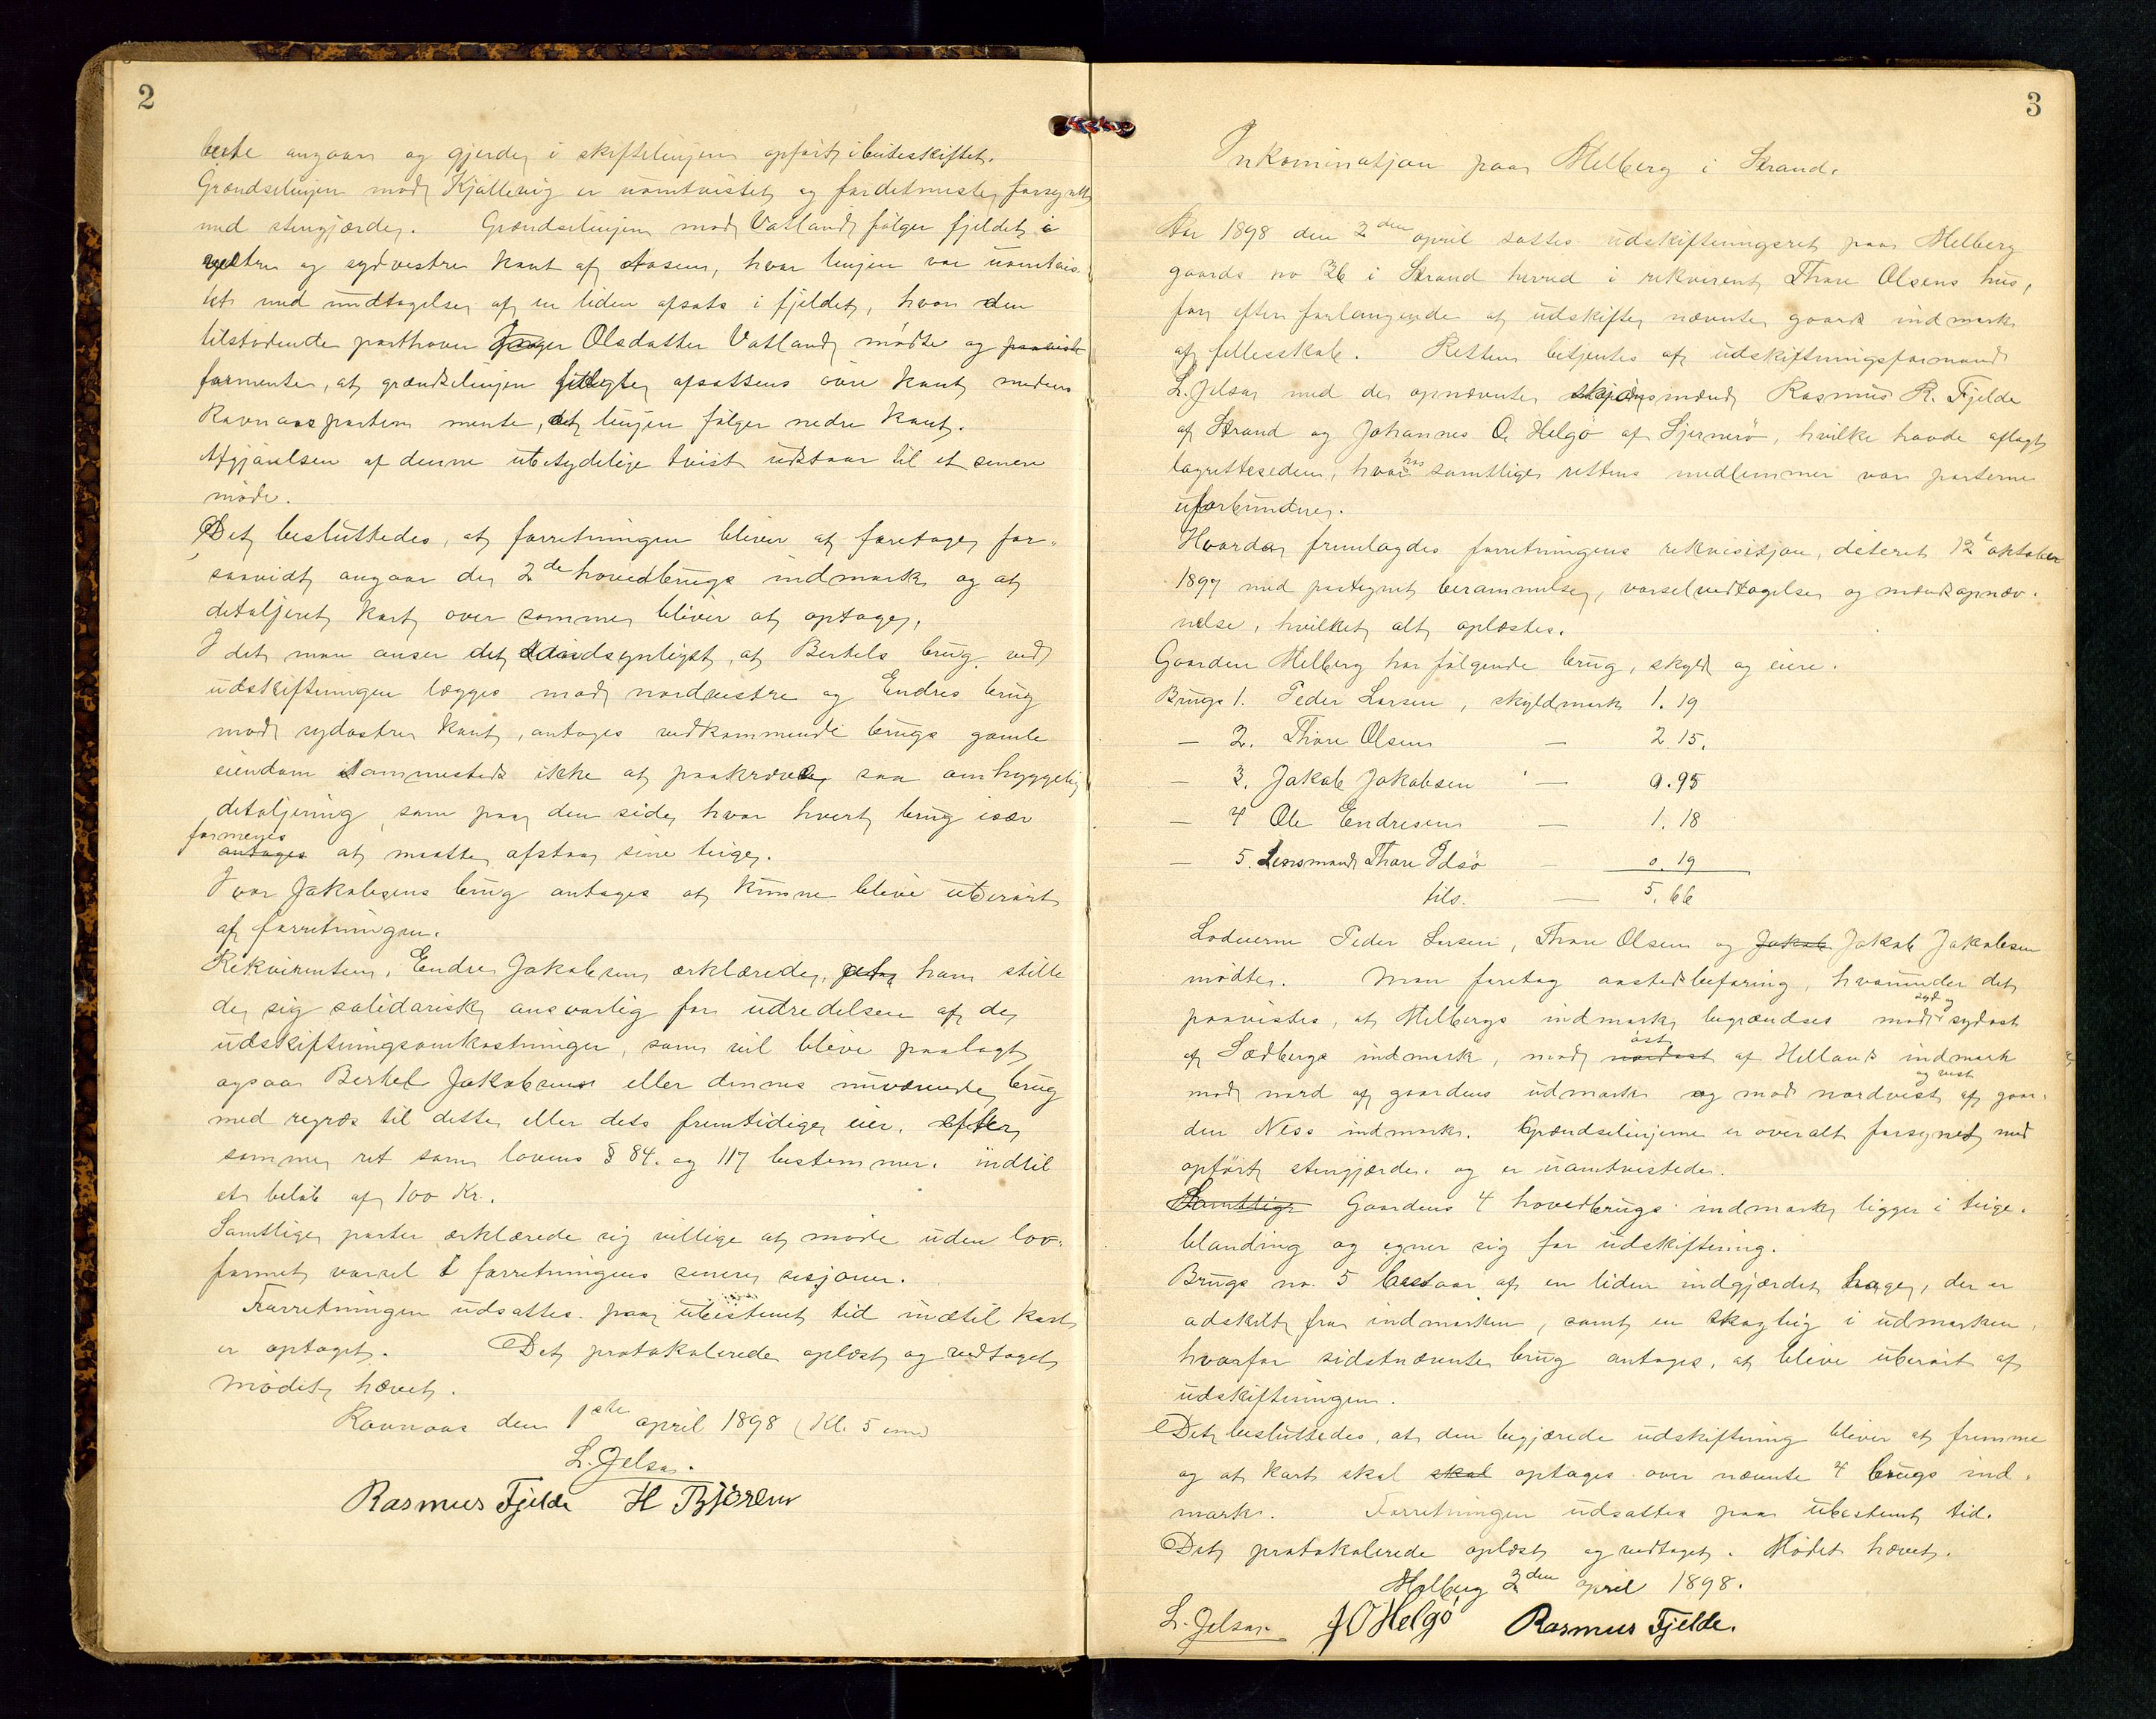 2
angaar og gjerde i skiftelinjen opført i buteskiftet.
Grændselinjen mod Kjøllevig er uomtvistet og fordetmeste forsynet
med stengjærde. Grændselinjen mod Vatland følger fjeldets
vestre og sydvestre kant af Aasen, hvor linjen var uomtvis-
tet med undtagelse af en liden afsats i fjeldet, hvor den
tilstødende parthaver Olsdatter Vatland mødte og paaviste
formente, at grændselinjen fulgte afsatsens øvre kant medens
Ravnaas parten mente, at linjen følger nedre kant.
Afgjørelsen af denne ubetydelige tvist udstaar til et senere
møde.
Det besluttedes, at forretningen bliver at foretage for-
saavidt angaar de 2de hovedbrugs indmark og at
detaljeret kart over samme bliver at optage.
I det man anser det sandsynligst, at Bertels brug ved
udskiftningen lægges mod nordvestre og Endres brug
mod sydøstre kant, antages vedkommende brugs gamle
eiendom sammesteds ikke at paakræve saa omhyggelig
detaljering, som paa den side, hvor hvert brug især
formenes
antages at maatte afstaa sine teige.
Ivar Jakobsens brug antages at kunne blive uberørt
af forretningen.
Rekvirenten, Endre Jakobsen erklærede, at han stille
de sig solidarisk ansvarlig for udredelsen af de
udskiftningsomkostninger, som vil blive paalagt
ogsaa Bertel Jakobsens eller dennes nuværende brug
med regres til dette eller dets fremtidige eier, efter
samme ret som lovens § 84. og 117 bestemmer. indtil
et beløb af 100 Kr.
Samtlige parter erklærede sig villige at møde uden lov-
formet varsel t forretningens senere sesjoner.
Forretningen udsattes paa ubestemt tid indtil kart
er optaget. Det protokolerede oplæst og vedtaget
mødet hævet.
Ravnaas den 1ste april 1898 (Kl. 5 em)
L. Jelsa.
Rasmus Fjelde H Bjøren
3
Inkominasjon paa Melberg i Strand.
Aar 1898 den 2den april sattes udskiftningsret paa Melberg
gaards no 36 i Strand herred i rekvirent Thore Olsens hus,
for efter forlangende at udskifte nævnte gaards indmark
af fellesskab. Retten betjentes af udskiftningsformand
L. Jelsa med de opnævnte skjønsmænd Rasmus R. Fjelde
af Strand og Johannes O. Helgø af Sjernerø, hvilke havde aflagt
lagrettesedem, hvorhos samtlige rettens medlemmer var parterne
uforbundne.
Hvorda fremlagdes forretningens rekvisisjon, dateret 12te oktober
1897 med paategnet berammelse, varselvedtagelse og mændsopnæv-
nelse, hvilket alt oplæstes.
Gaarden Melberg har følgende brug, skyld og eiere.
Brugs 1. Peder Larsen, skyldmark 1.19
— 2. Thore Olsen — 2.15.
— 3. Jakob Jakobsen — 0.95
— 4 Ole Endresen — 1.18
— 5. Lensmand Thore Idsø — 0.19
tils. — 5.66
Lodeierne Peder Larsen, Thore Olsen og Jakob Jakob Jakobsen
mødte. Man foretog aastedsbefaring, hvorunder det
syd og
paavistes, at Melbergs indmark begrændses mod sydost
øst
af Sædbergs indmark, mod nordost af Hellands indmark
og vest
mod nord af gaardens udmark og mod nordvest af gaar-
den Ness indmark. Grændselinjerne er overalt forsynet med
opført stengjærde. og er uomtvistede.
Samtlige Gaardens 4 hovedbrugs indmark ligger i teige-
blanding og egner sig for udskiftning.
Brugs no. 5 bestaar af en liden indgjærdet hage, der er
adskilt fra indmarken, samt en skogteig i udmarken,
hvorfor sidstnævnte brug antages, at blive uberørt af
udskiftningen.
Det besluttedes, at den begjærede udskiftning bliver at fremme
og at kart skal skal optages over nævnte 4 brugs ind-
mark. Forretningen udsattes paa ubestemt tid.
Det protokolerede oplæst og vedtaget. Mødet hævet.
Melberg 2den april 1898.
L. Jelsa. J O Helgø Rasmus Fjelde.